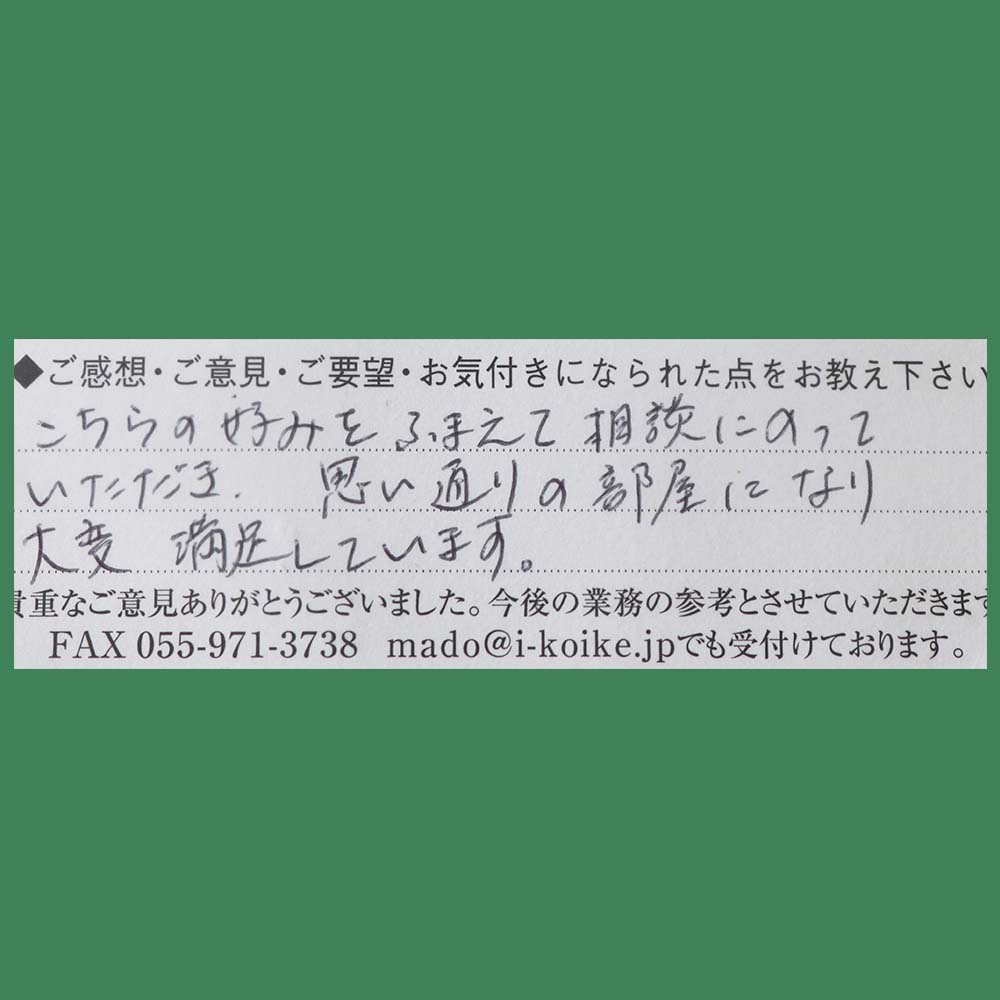 ◆ご感想・ご意見・ご要望・お気付きになられた点をお教え下さい
こちらの好みをふまえて相談にのって
いただき、思い通りの部屋になり
大変満足しています。
貴重なご意見ありがとうございました。今後の業務の参考とさせていただきます
FAX 055-971-3738 mado@i-koike.jpでも受付けております。